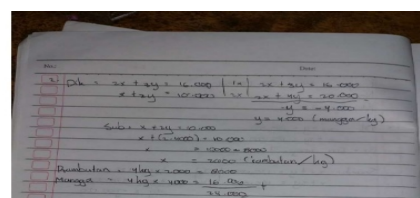 No.
Date
2. Dik = 2x + 3y = 16.000 | 1x | 2x + 3y = 16.000
x + 2y = 10.000 | 2x | 2x + 4y = 20.000 -
-y = -4.000
y = 4.000 (mangga/kg)
Sub = x + 2y = 10.000
x + (2.4000) = 10.000
x = 10000 - 8000
x = 2000 (rambutan/kg)
Rambutan = 4 kg x 2.000 = 8000
Mangga = 4 kg x 4000 = 16.000 +
24.000